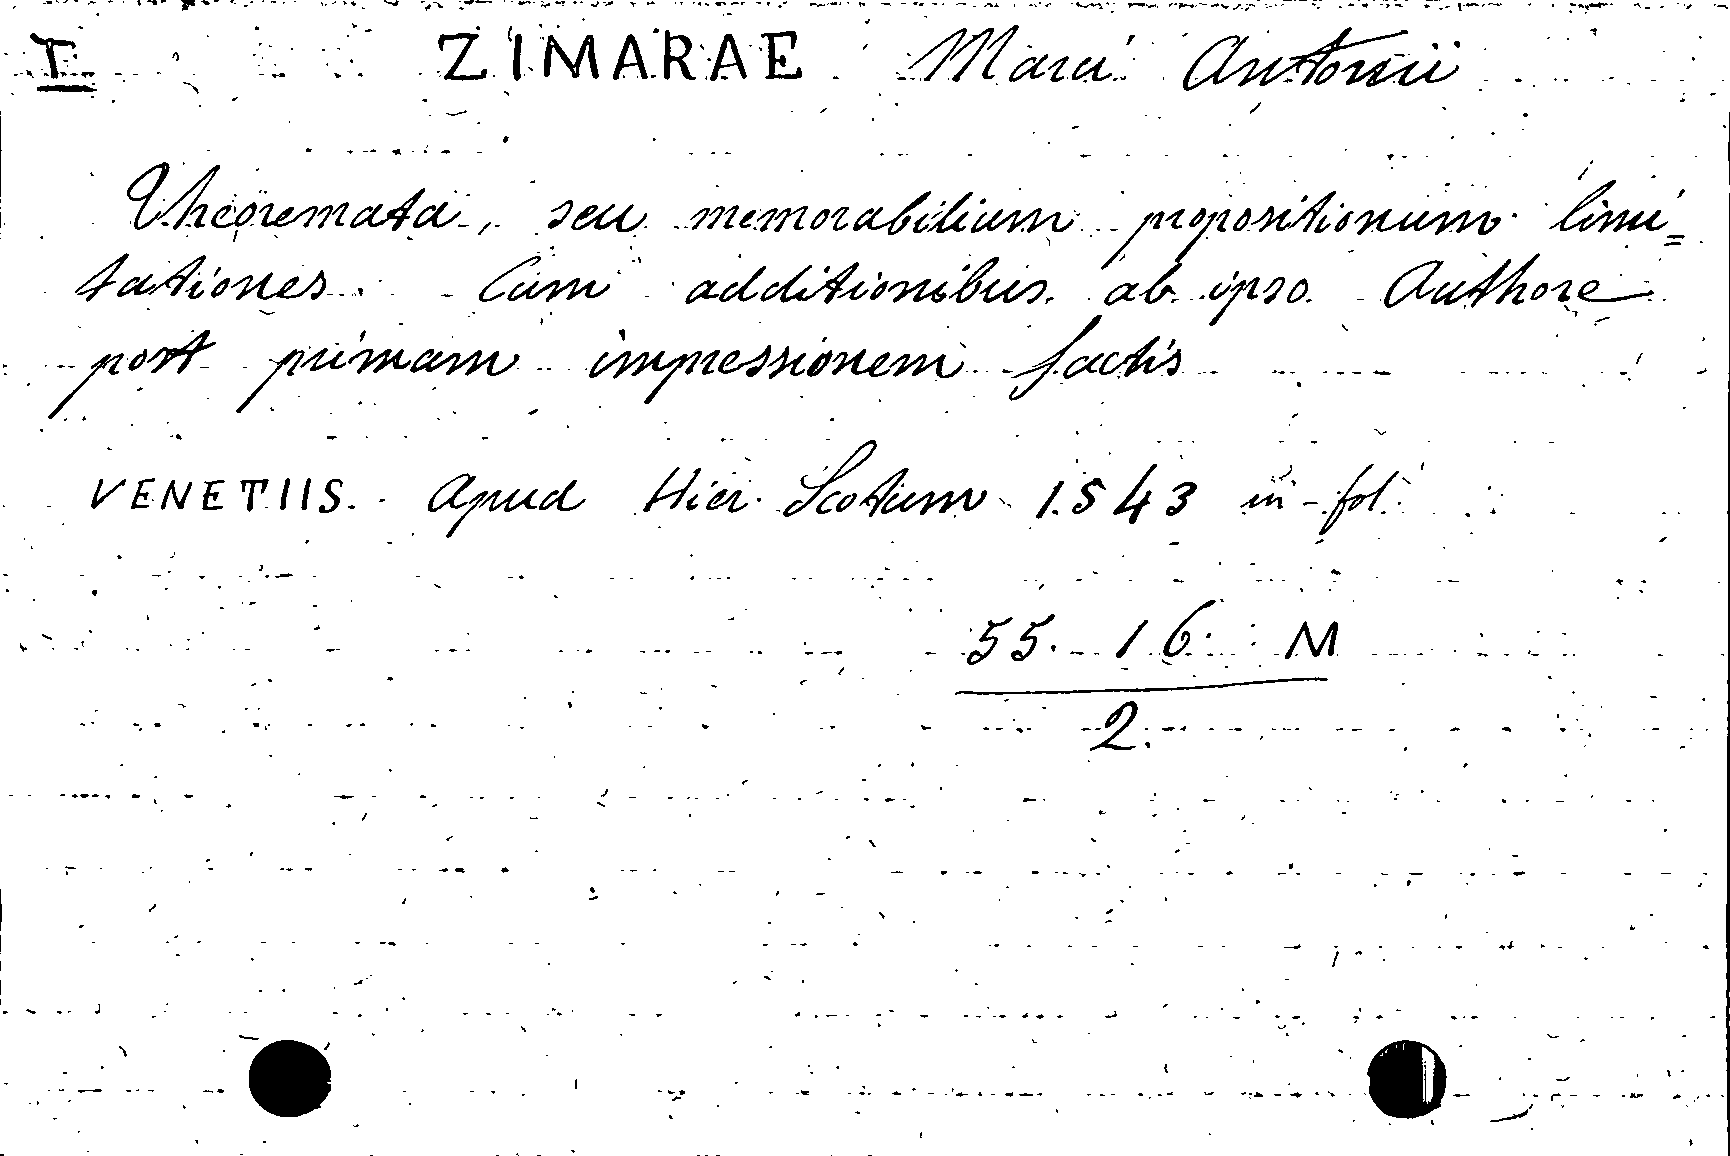 I ZIMARAE Marci Antonii
Theoremata, seu memorabilium propositionum limi=
tationes. Cum additionibus ab ipso Authore
post primam impressionem factis
VENETIIS. Apud Hier. Scotum 1543 in-fol.
55. 16. M
2.